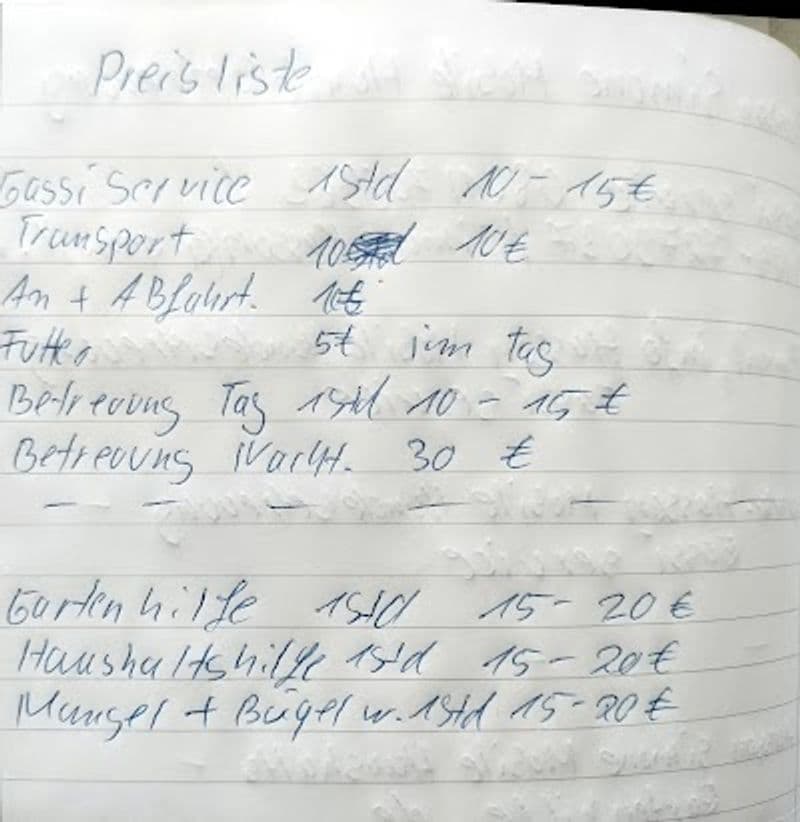 Preisliste
Gassi Service 1Std 10 - 15€
Transport 10€
An + ABfahrt. 1€
Futter 5€ im Tag
Betreuung Tag 1Std 10 - 15 €
Betreuung Nacht. 30 €
Gartenhilfe 1Std 15 - 20 €
Haushaltshilfe 1Std 15 - 20€
Mangel + Bügel w. 1Std 15 - 20 €